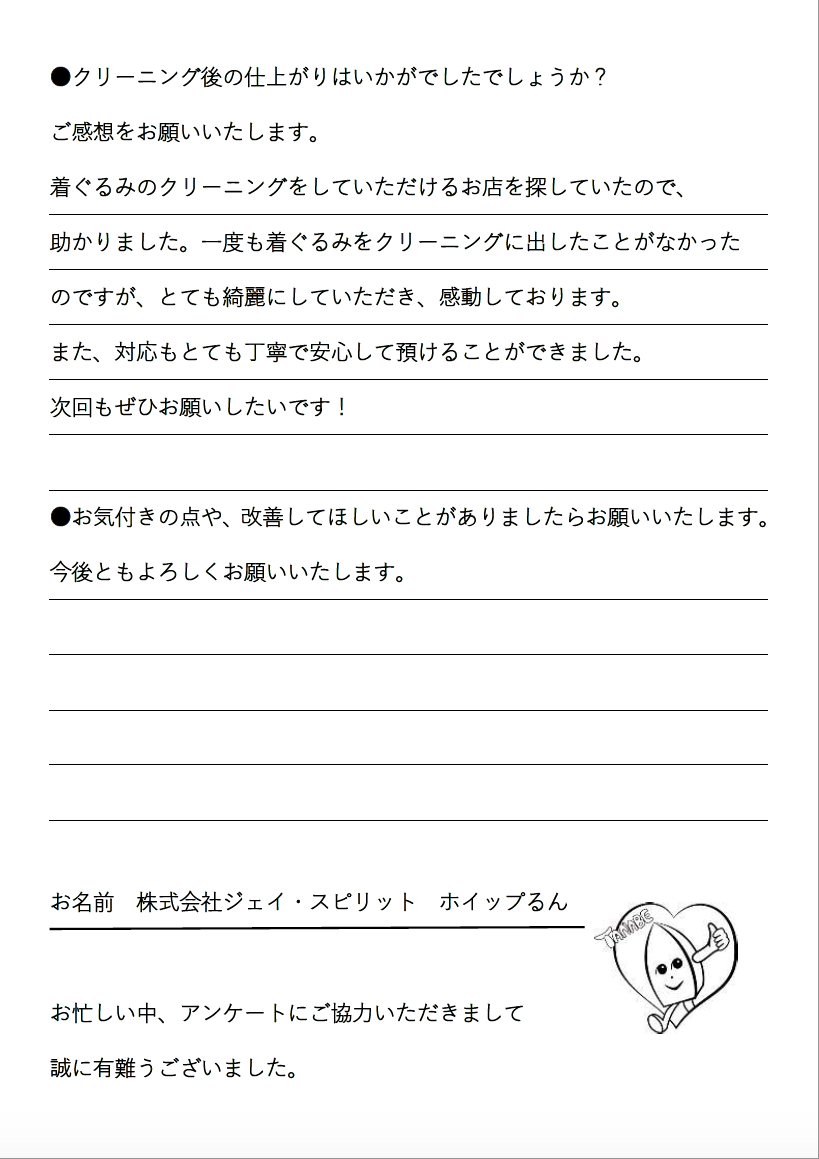 ●クリーニング後の仕上がりはいかがでしたでしょうか？
ご感想をお願いいたします。
着ぐるみのクリーニングをしていただけるお店を探していたので、
助かりました。一度も着ぐるみをクリーニングに出したことがなかった
のですが、とても綺麗にしていただき、感動しております。
また、対応もとても丁寧で安心して預けることができました。
次回もぜひお願いしたいです！
●お気付きの点や、改善してほしいことがありましたらお願いいたします。
今後ともよろしくお願いいたします。
お名前　株式会社ジェイ・スピリット　ホイップるん
TANABE
お忙しい中、アンケートにご協力いただきまして
誠に有難うございました。